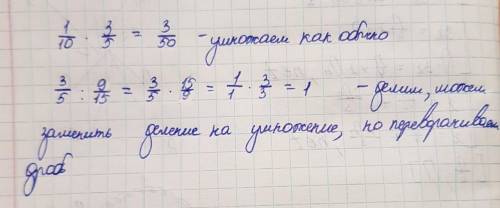 1/10 · 3/5 = 3/50 - умножаем как обычно
3/5 : 9/15 = 3/5 · 15/9 = 1/1 · 3/3 = 1 - делим, можем
заменить деление на умножение, но переворачиваем
дробь